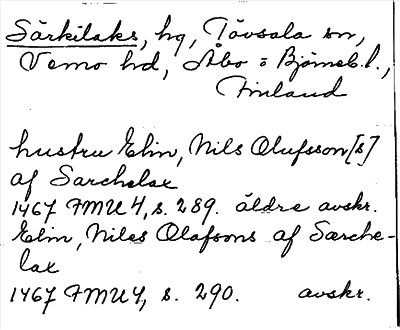 Särkilaks, hg, Tövsala sn,
Vemo hd, Åbo o Björneb. l.,
Finland
hustru Elin, Nils Olufsson[s]
af Sarchelax
1467 FMU 4, s. 289. äldre avskr.
Elin, Niles Olafsons af Sarche-
lax
1467 FMU 4, s. 290. avskr.